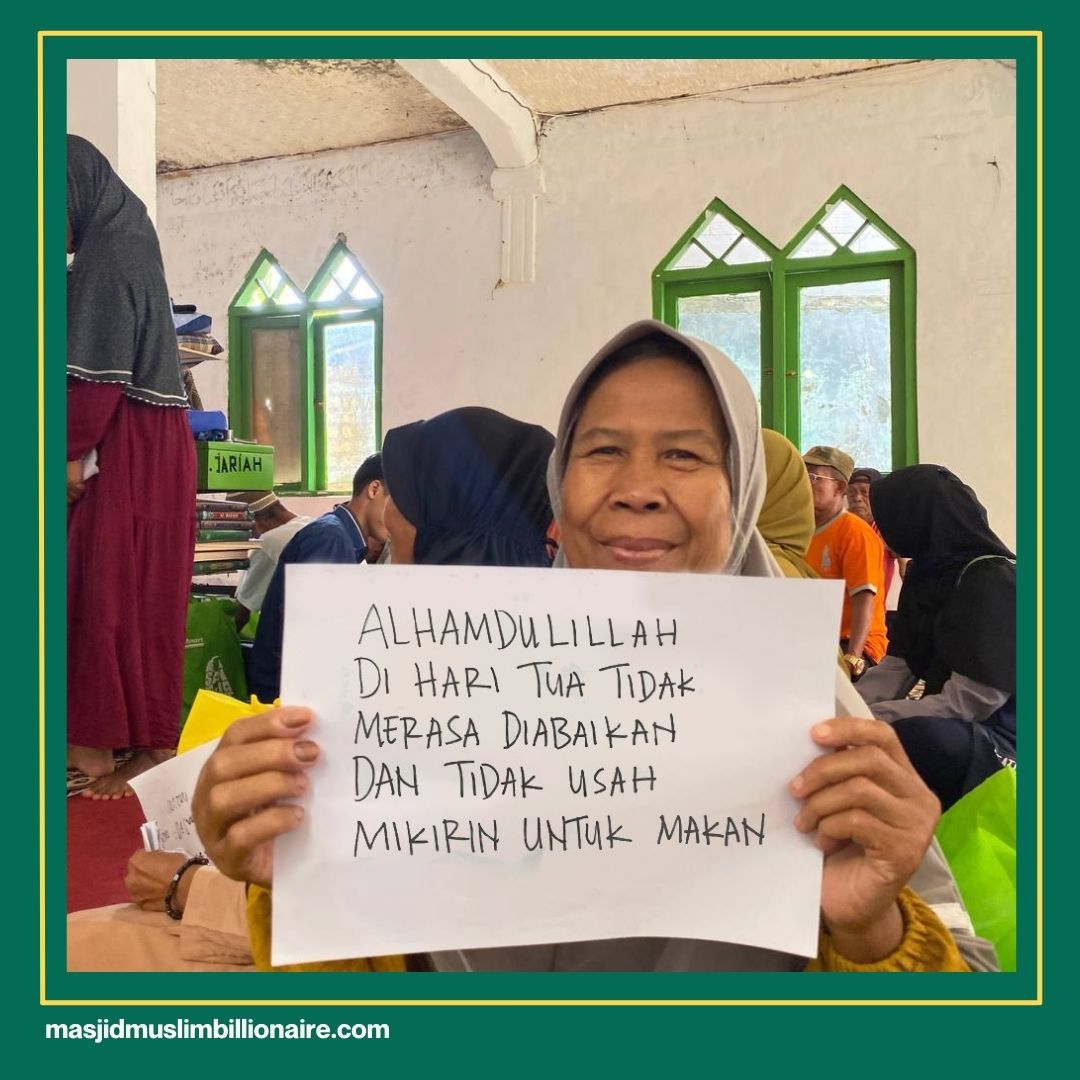 .JARIAH
ALHAMDULILLAH
DI HARI TUA TIDAK
MERASA DIABAIKAN
DAN TIDAK USAH
MIKIRIN UNTUK MAKAN
masjidmuslimbillionaire.com